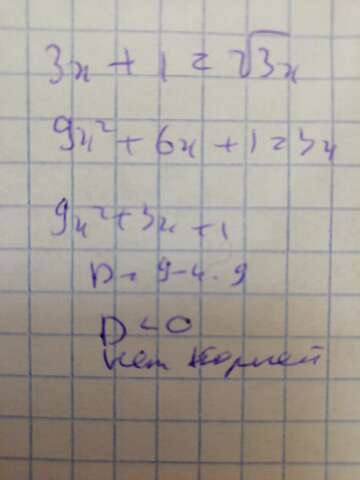 3x + 1 = √3x
9x² + 6x + 1 = 3x
9x² + 3x + 1
D = 9 - 4 · 9
D < 0
нет корней